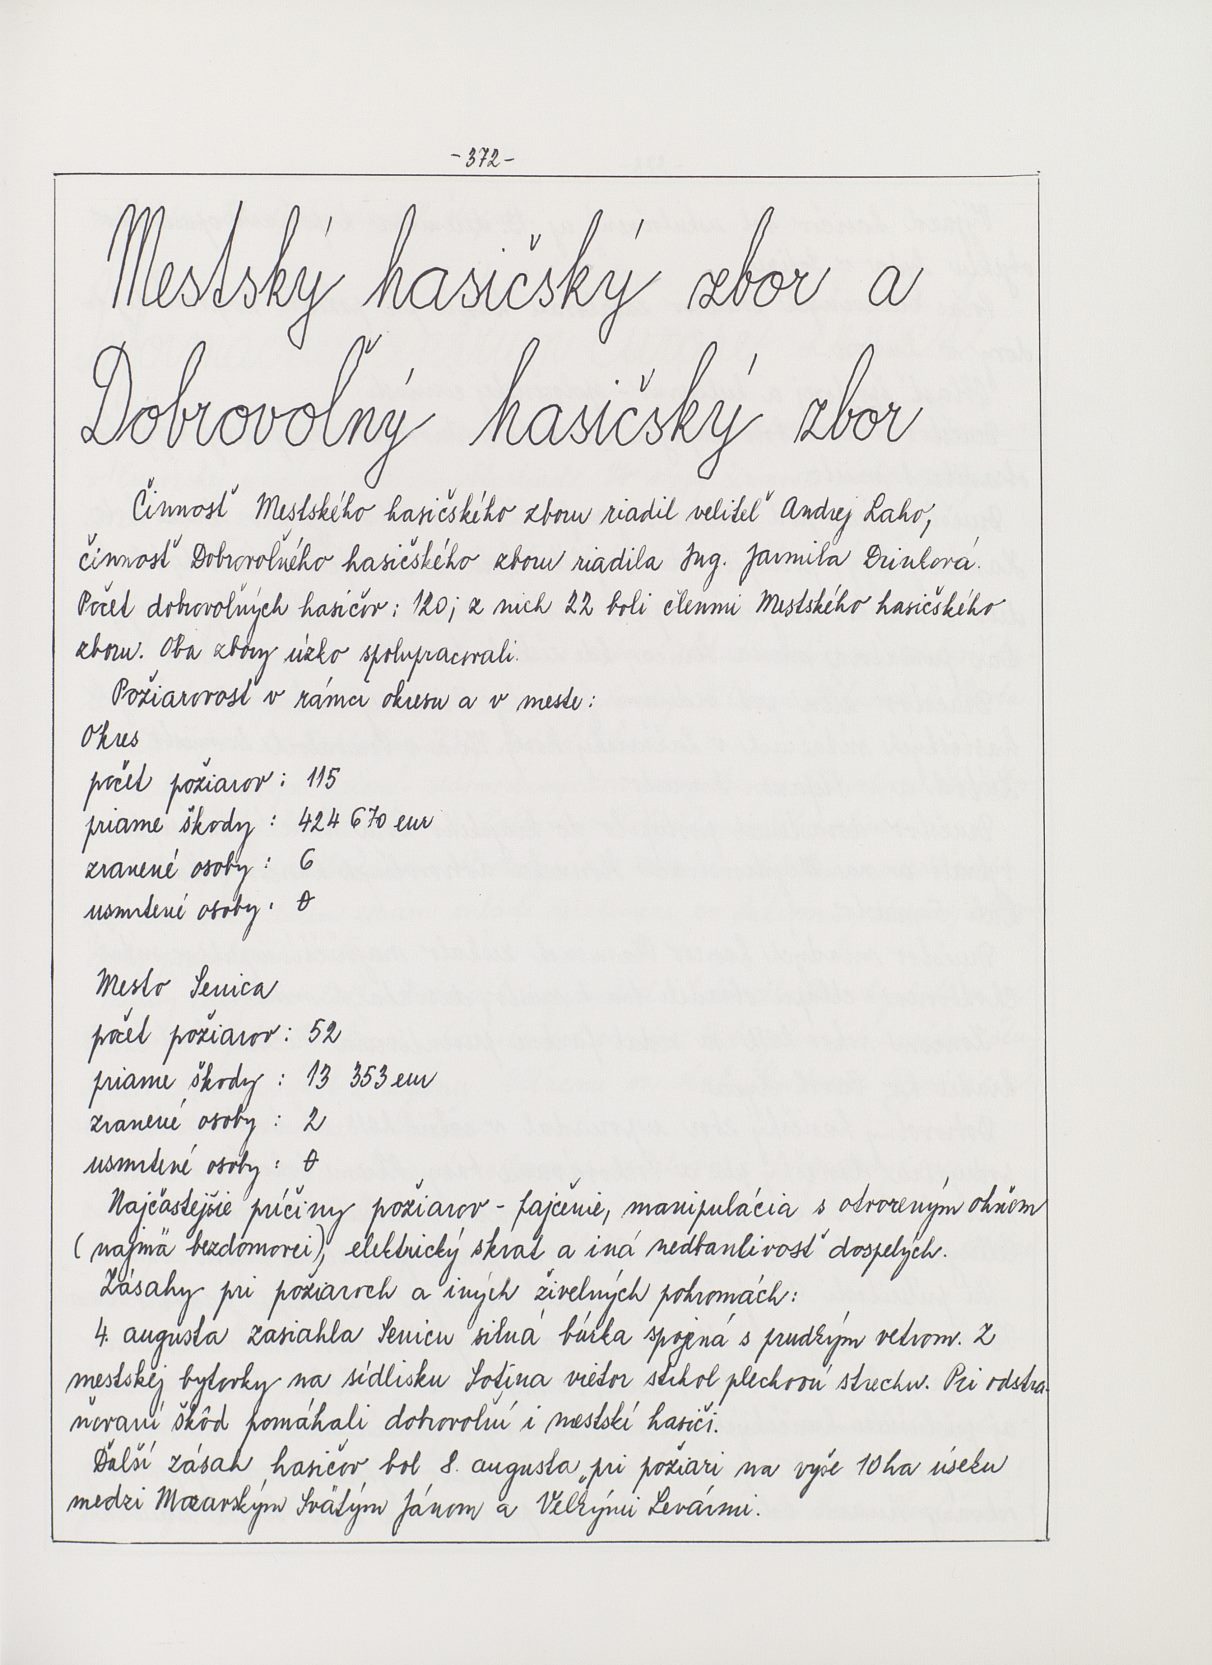 -372-
Mestský hasičský zbor a
Dobrovoľný hasičský zbor
Činnosť Mestského hasičského zboru riadil veliteľ Andrej Laho,
činnosť Dobrovoľného hasičského zboru riadila Ing. Jarmila Drinková.
Počet dobrovoľných hasičov: 120; z nich 22 boli členmi Mestského hasičského
zboru. Oba zbory úzko spolupracovali.
Požiarovosť v rámci okresu a v meste:
Okres
počet požiarov: 115
priame škody: 424 670 eur
zranené osoby: 6
usmrtené osoby: 0
Mesto Senica
počet požiarov: 52
priame škody: 13 353 eur
zranené osoby: 2
usmrtené osoby: 0
Najčastejšie príčiny požiarov - fajčenie, manipulácia s otvoreným ohňom
(najmä bezdomovci), elektrický skrat a iná nedbanlivosť dospelých.
Zásahy pri požiaroch a iných živelných pohromách:
4. augusta zasiahla Senicu silná búrka spojená s prudkým vetrom. Z
mestskej bytovky na sídlisku Sotina vietor strhol plechovú strechu. Pri odstra-
ňovaní škôd pomáhali dobrovoľní i mestskí hasiči.
Ďalší zásah hasičov bol 8. augusta pri požiari na vyše 10 ha úseku
medzi Moravským Svätým Jánom a Veľkými Levármi.